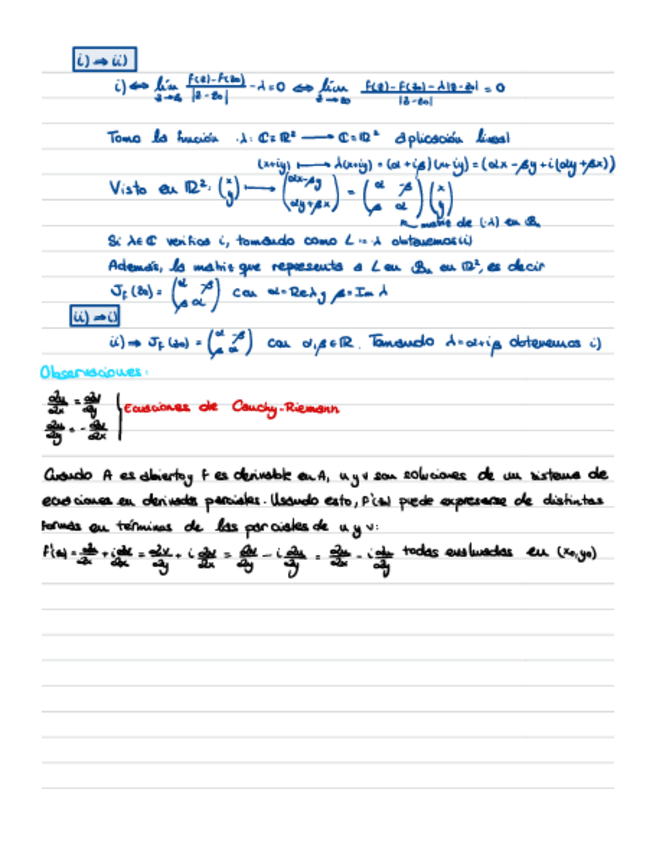 i) ⇒ ii)
i) ⇔ lím_{z→z₀} (f(z)-f(z₀))/|z-z₀| - λ = 0 ⇔ lím_{z→z₀} (f(z)-f(z₀)-λ|z-z₀|)/|z-z₀| = 0
Tomo la función ·λ: ℂ≡ℝ² ⟶ ℂ≡ℝ² aplicación lineal
(x+iy) ⟼ λ(x+iy) = (α+iβ)(x+iy) = (αx-βy+i(αy+βx))
Visto en ℝ²: (x y) ⟼ (αx-βy αy+βx) = (α -β β α)(x y)
matriz de (·λ) en
Si λ∈ℂ verifica i, tomando como L = ·λ obtenemos ii)
Además, la matriz que representa a L en en ℝ², es decir
J_f(z₀) = (α -β β α) con α=Reλ y β=Im λ
ii) ⇒ i)
ii) ⇒ J_f(z₀) = (α -β β α) con α,β∈ℝ. Tomando λ=α+iβ obtenemos i)
Observaciones:
∂u/∂x = ∂v/∂y
∂u/∂y = -∂v/∂x
Ecuaciones de Cauchy-Riemann
Cuando A es abierto y f es derivable en A, u y v son soluciones de un sistema de
ecuaciones en derivadas parciales. Usando esto, f'(z₀) puede expresarse de distintas
formas en términos de las parciales de u y v:
f'(z₀) = ∂u/∂x + i ∂v/∂x = ∂v/∂y + i ∂v/∂x = ∂v/∂y - i ∂u/∂y = ∂u/∂x - i ∂u/∂y todas evaluadas en (x₀,y₀)